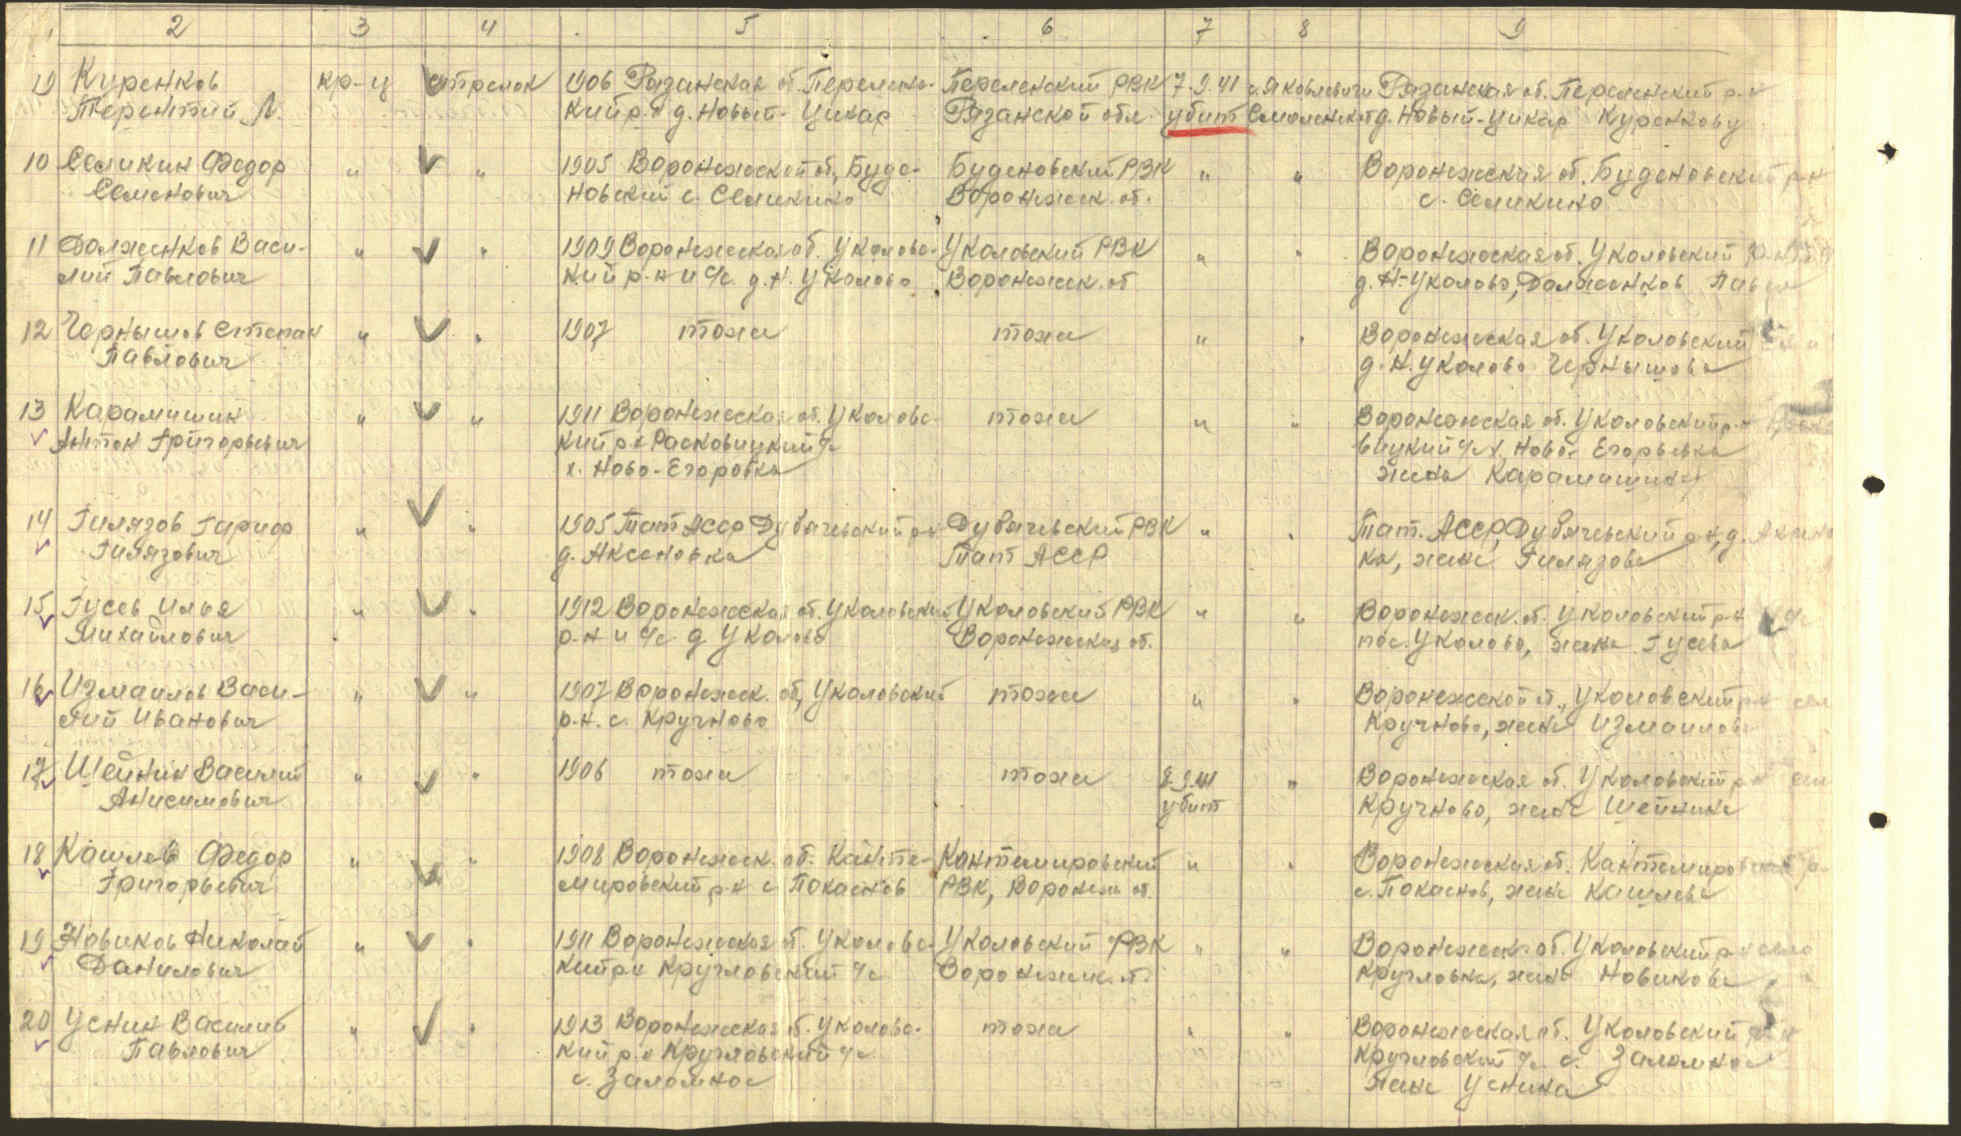 2 3 4 5 6 7 8 9
19 Куренков кр-ц стрелок 1906 Рязанская об. Переленс- Переленский РВК 7.9.41 с. Яковлевичи Рязанская об. Переленский р-н
Терентий Л. кий р-н д. Новый-Цикар Рязанской обл. убит Смоленской д. Новый-Цикар Куренкову
10 Селикин Федор " " 1905 Воронежской об, Буде- Буденовский РВК " " Воронежская об. Буденовский р-н
Семенович новский с. Селикино Воронежск. об. с. Селикино
11 Долженков Васи- " " 1909 Воронежская об. Уколовс- Уколовский РВК " " Воронежская об. Уколовский р-н
лий Павлович кий р-н и с/с д. Н. Уколово Воронежск. об д. Н-Уколово, Долженков
12 Чернышов Степан " " 1907 тоже тоже " " Воронежская об. Уколовский
Павлович д. Н. Уколово Чернышова
13 Карамишин " " 1911 Воронежская об. Уколовс- тоже " " Воронежская об. Уколовский р-н
Антон Григорьевич кий р-н Расховицкий с/с вицкий с/с х. Ново-Егорьевка
х. Ново-Егоровка жена Карамишина
14 Гилязов Гариф " " 1905 Тат АССР Дубячьский р-н Дубячьский РВК " " Тат. АССР, Дубячьский р-н, д. Аксено
Гилязович д. Аксеновка Тат АССР ка, жена Гилязова
15 Гусев Илья " " 1912 Воронежская об. Уколовский Уколовский РВК " " Воронежск. об. Уколовский р-н с/с
Михайлович р-н и с/с д Уколово Воронежская об. пос. Уколово, жена Гусева
16 Измаилов Васи- " " 1907 Воронежск. об, Уколовский тоже " " Воронежской об., Уколовский р-н сел
лий Иванович р-н. с. Кручново Кручново, жена Измаилова
17 Шейнин Василий " " 1906 тоже тоже 8.9.41 " Воронежская об. Уколовский р-н сел
Анисимович убит Кручново, жена Шейнина
18 Кашлев Федор " " 1908 Воронежск. об. Канте- Кантемировский " " Воронежская об. Кантемировский р-
Григорьевич мировский р-н с Покаснов РВК, Воронеж об. с. Покаснов, жена Кашлева
19 Новиков Николай " " 1911 Воронежская об. Уколовс- Уколовский РВК " " Воронежск об. Уколовский р-н село
Данилович кий р-н Кругловский с/с Воронежск. об. Кругловка, жена Новикова
20 Уснин Василий " " 1913 Воронежская об. Уколовс- тоже " " Воронежская об. Уколовский р-н
Павлович кий р-н Кругловский с/с Кругловский с/с. с. Заломное
с. Заломное жена Уснина